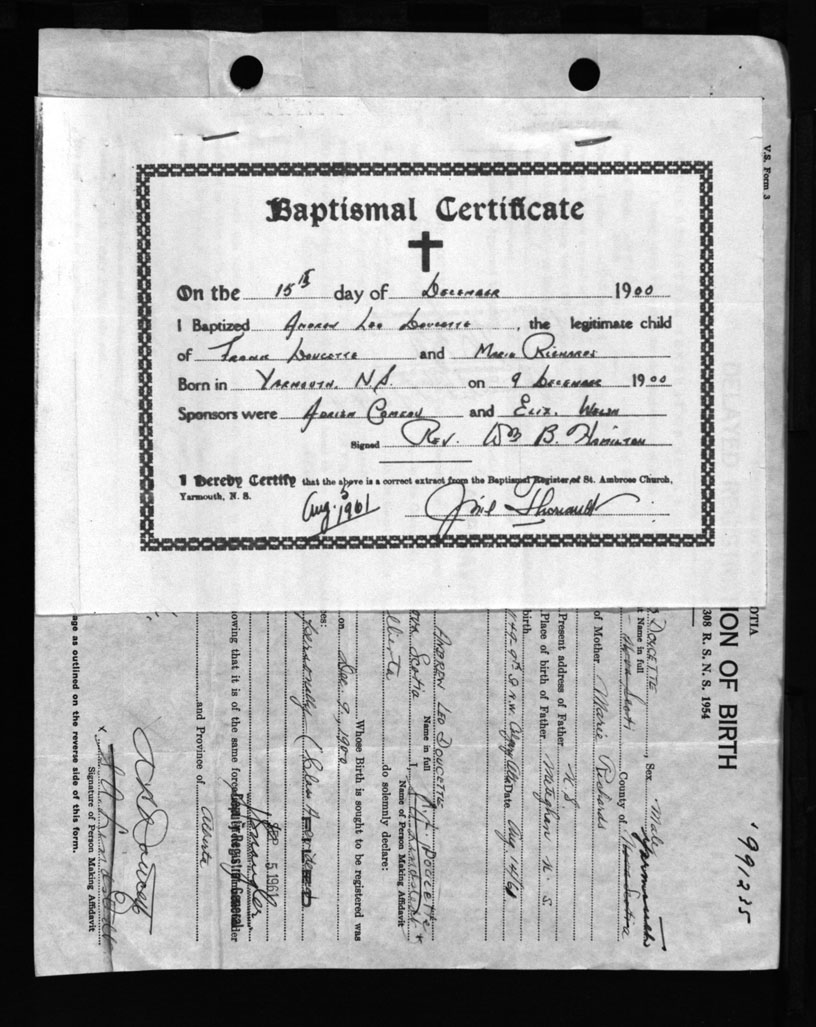 Baptismal Certificate
On the 15th day of December 1900
I Baptized Andrew Leo Doucette, the legitimate child
of Frank Doucette and Maria Richards
Born in Yarmouth, N.S. on 9 December 1900
Sponsors were Adrien Comeau and Eliz. Welsh
Signed Rev. Wm B. Hamilton
I Hereby Certify that the above is a correct extract from the Baptismal Register of St. Ambrose Church,
Yarmouth, N. S.
Aug. 5 1961
V.S. Form 3
OTIA
ION OF BIRTH
308 R. S. N. S. 1954
991235
Doucette, Sex Male
t Name in full
Nova Scoti County of Nova Scotia Yarmouth
of Mother Marie Richards
Present address of Father N.S.
Place of birth of Father Meteghan N. S.
birth
Date Aug 14/61
Andrew Leo Doucette
Name in full
ova Scotia I,
Name of Person Making Affidavit
lberta do solemnly declare:
Whose Birth is sought to be registered was
on Dec. 9, 1900
es:
personally
owing that it is of the same force
SEP 5 1961
Deputy Registrar General
and Province of Alberta
Signature of Person Making Affidavit
age as outlined on the reverse side of this form.